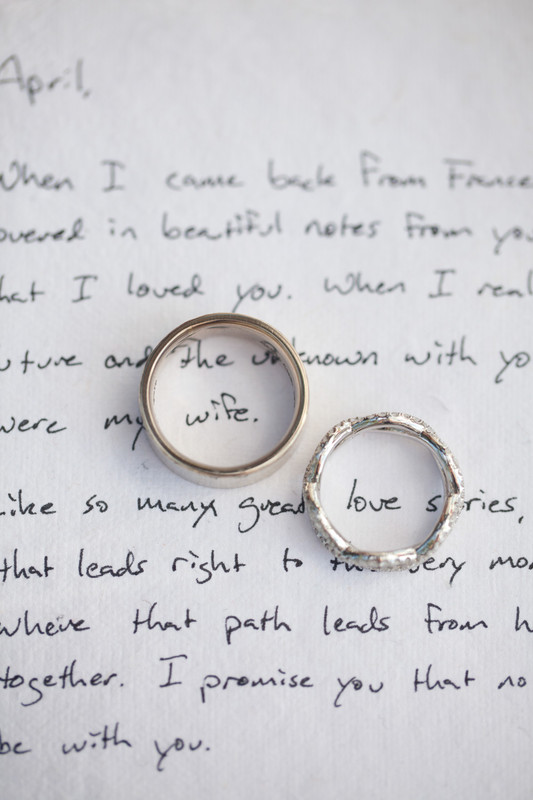 April,
When I came back from France
overed in beautiful notes from you
hat I loved you. When I real
uture and the unknown with yo
were my wife.
Like so many great love stories,
that leads right to this very mom
where that path leads from h
together. I promise you that no
be with you.